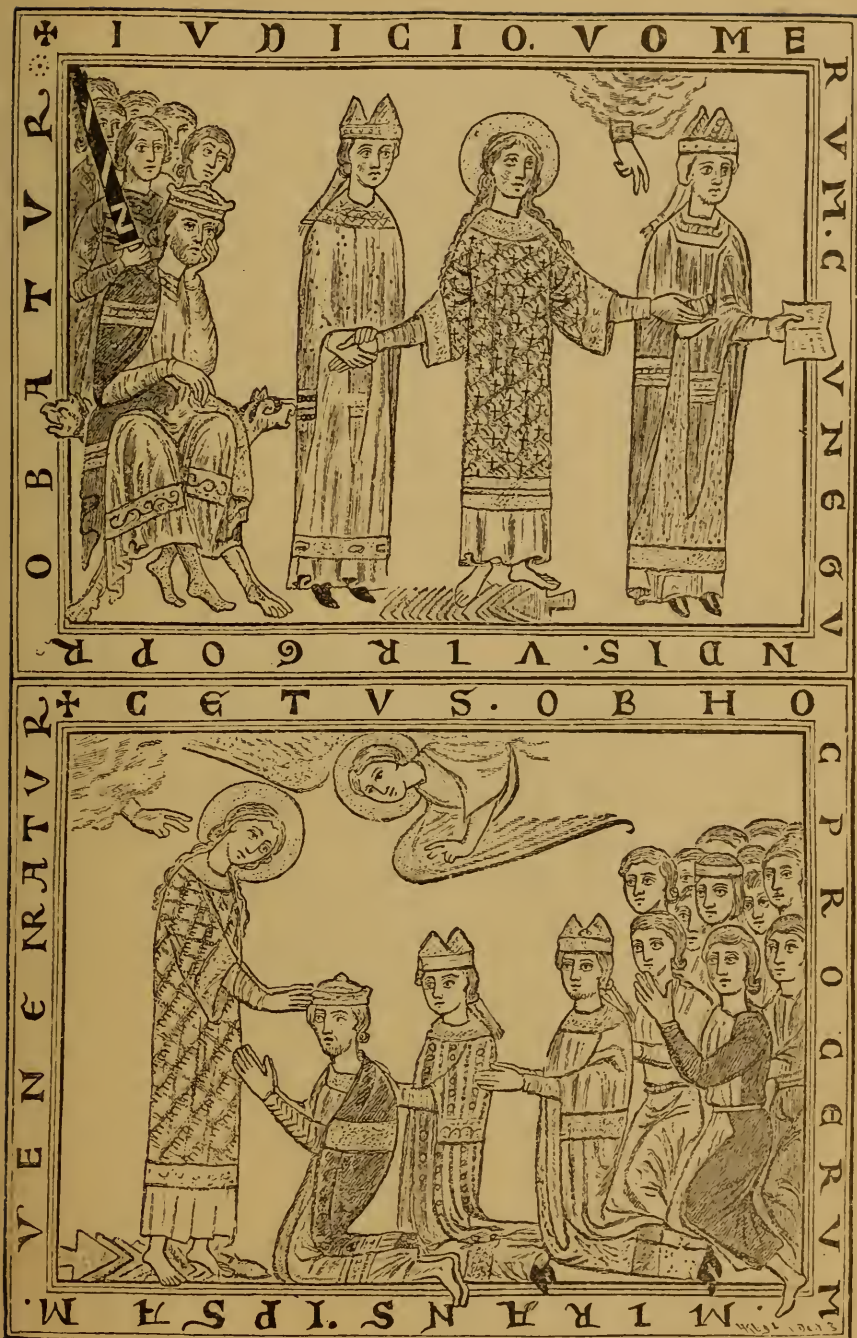 ✠ IVDICIO. VOME
RVM. CVNEGV
NDIS. VIRGO PR
OBATVR
N
✠ CETVS. OB HO
C PROCERVM
. MIRANS. IPSAM.
VENERATVR